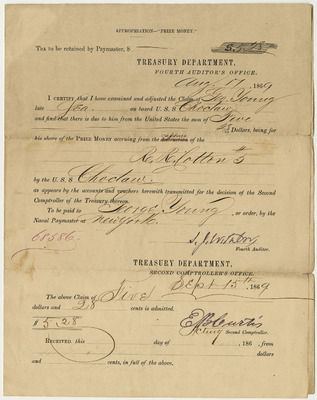 APPROPRIATION—"PRIZE MONEY."
TAX to be retained by Paymaster, $
$5.28
TREASURY DEPARTMENT,
FOURTH AUDITOR'S OFFICE.
Aug 17, 1869
I CERTIFY that I have examined and adjusted the Claim of Geo. Young
late Sea. on board U. S. S. Choctaw
and find that there is due to him from the United States the sum of Five
Dollars, being for
his share of the PRIZE MONEY accruing from the capture of the
R. R. Cotten #3
by the U. S. S. Choctaw.
as appears by the accounts and vouchers herewith transmitted for the decision of the Second
Comptroller of the Treasury thereon.
To be paid to George Young, or order, by the
Naval Paymaster at New York.
68586.
Fourth Auditor.
TREASURY DEPARTMENT,
SECOND COMPTROLLER'S OFFICE.
Sept 15th 1869
The above Claim of Five
dollars and 28 cents is admitted.
$5,28
E B Curtis
Acting Second Comptroller.
RECEIVED, this day of , 186 , from
dollars
and cents, in full of the above.